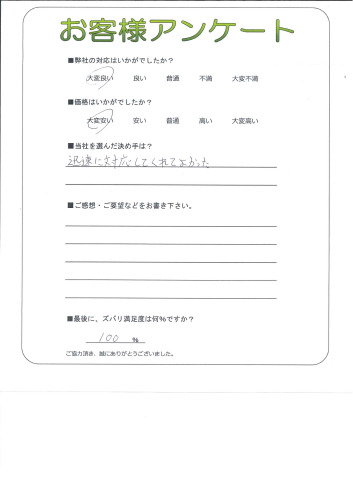 お客様アンケート
■弊社の対応はいかがでしたか？
大変良い 良い 普通 不満 大変不満
■価格はいかがでしたか？
大変安い 安い 普通 高い 大変高い
■当社を選んだ決め手は？
迅速に対応してくれてよかった
■ご感想・ご要望などをお書き下さい。
■最後に、ズバリ満足度は何％ですか？
100 ％
ご協力頂き、誠にありがとうございました。